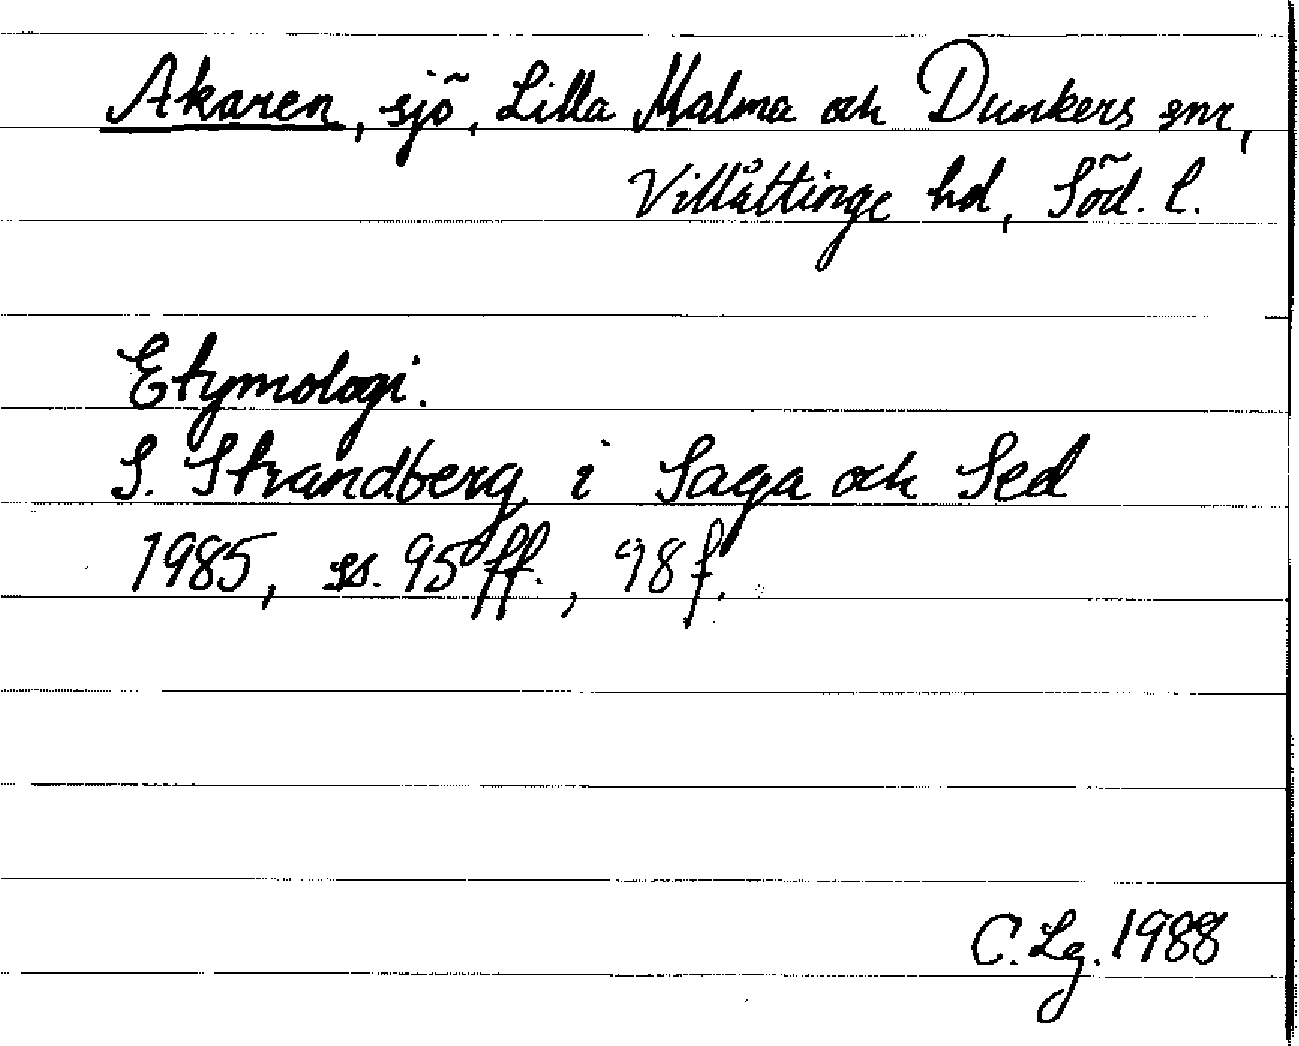 Akaren, sjö, Lilla Malma och Dunkers snr,
Villåttinge hd, Söd. l.
Etymologi.
S. Strandberg i Saga och Sed
1985, ss. 95 ff., 98 f.
C. Lg. 1988